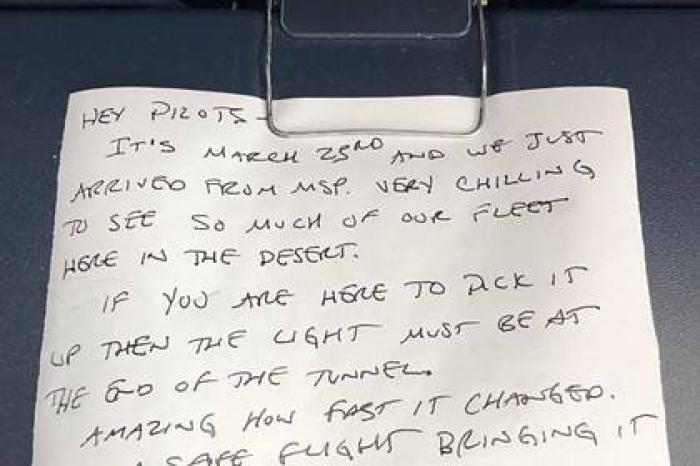 HEY PILOTS-
IT'S MARCH 23RD AND WE JUST
ARRIVED FROM MSP. VERY CHILLING
TO SEE SO MUCH OF OUR FLEET
HERE IN THE DESERT.
IF YOU ARE HERE TO PICK IT
UP THEN THE LIGHT MUST BE AT
THE END OF THE TUNNEL.
AMAZING HOW FAST IT CHANGED.
SAFE FLIGHT BRINGING IT